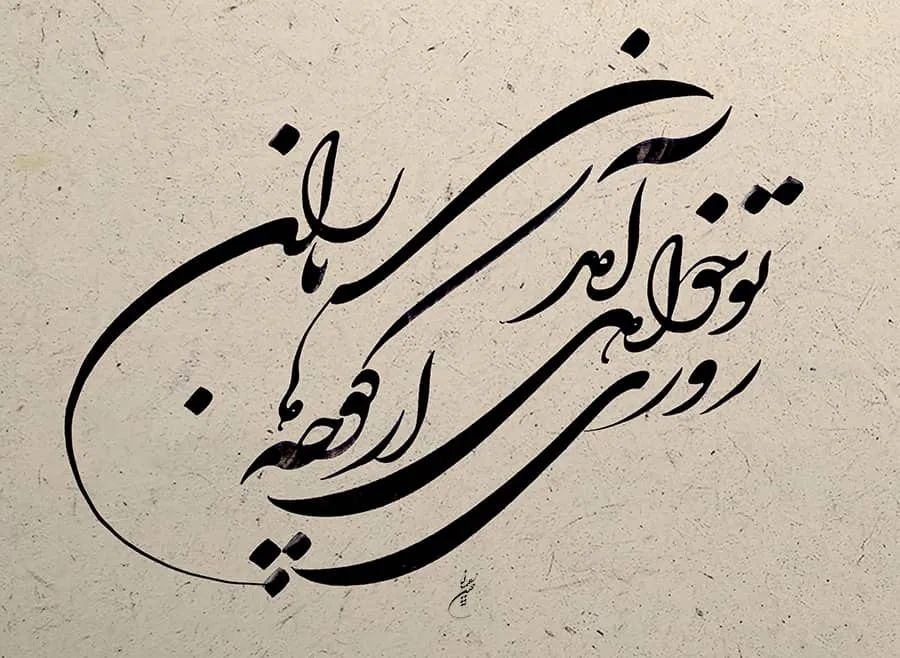 روزی تو خواهی آمد از کوچه های باران